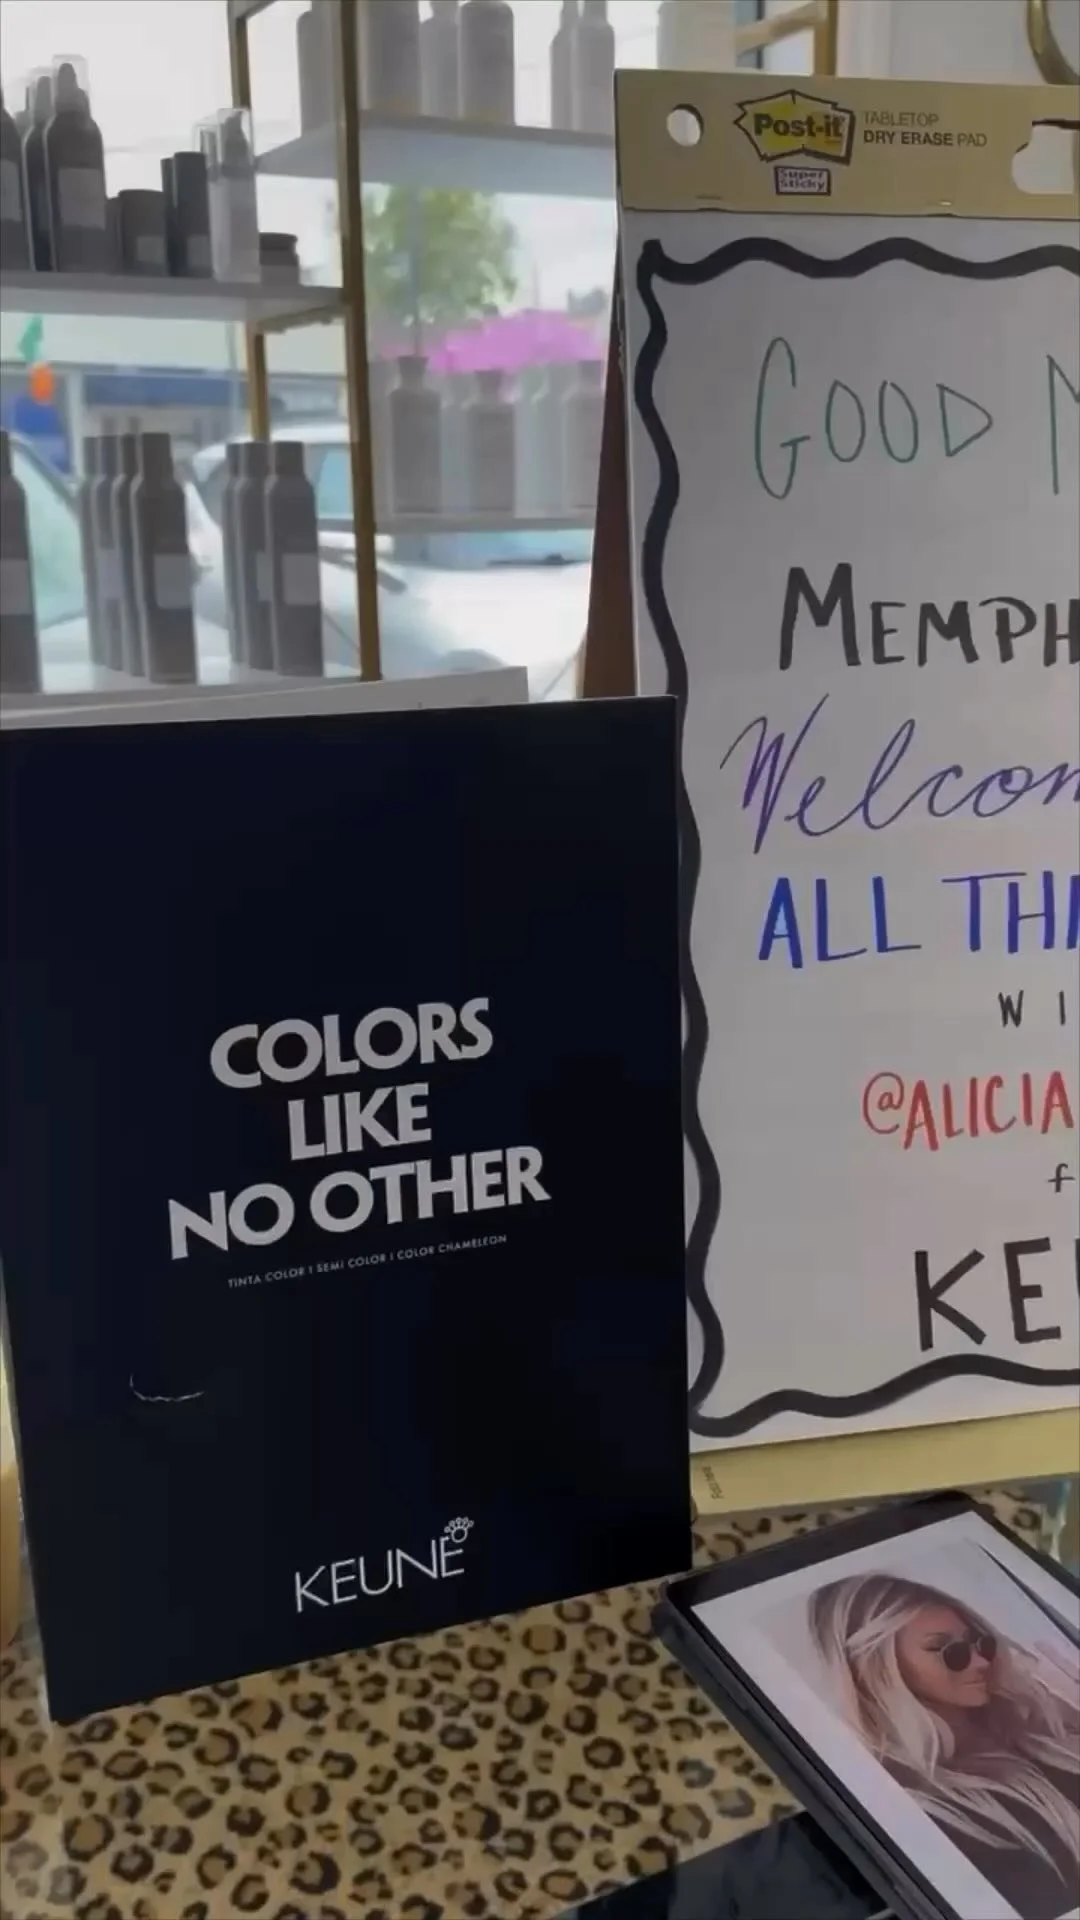 Post-it
Super
Sticky
TABLETOP
DRY ERASE PAD
GOOD M
MEMPH
Welcom
ALL THI
WI
@ALICIA
f
KEU
COLORS
LIKE
NO OTHER
TINTA COLOR | SEMI COLOR | COLOR CHAMELEON
KEUNE